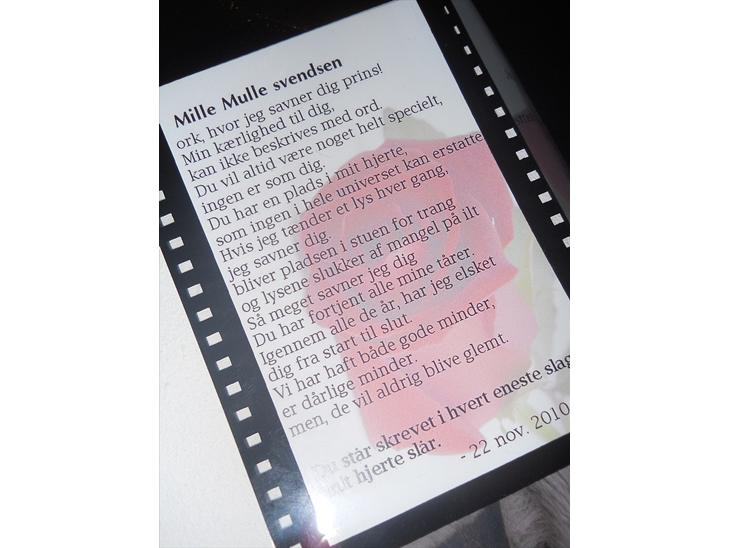 Mille Mulle svendsen
ork, hvor jeg savner dig prins!
Min kærlighed til dig,
kan ikke beskrives med ord
Du vil altid være noget helt specielt,
ingen er som dig.
Du har en plads i mit hjerte,
som ingen i hele universet kan erstatte
Hvis jeg tænder et lys hver gang,
jeg savner dig.
bliver pladsen i stuen for trang
og lysene slukker af mangel på ilt
Så meget savner jeg dig
Du har fortjent alle mine tårer.
Igennem alle de år, har jeg elsket
dig fra start til slut.
Vi har haft både gode minder,
er dårlige minder.
men, de vil aldrig blive glemt.
Du står skrevet i hvert eneste slag
mit hjerte slår.
- 22 nov. 2010